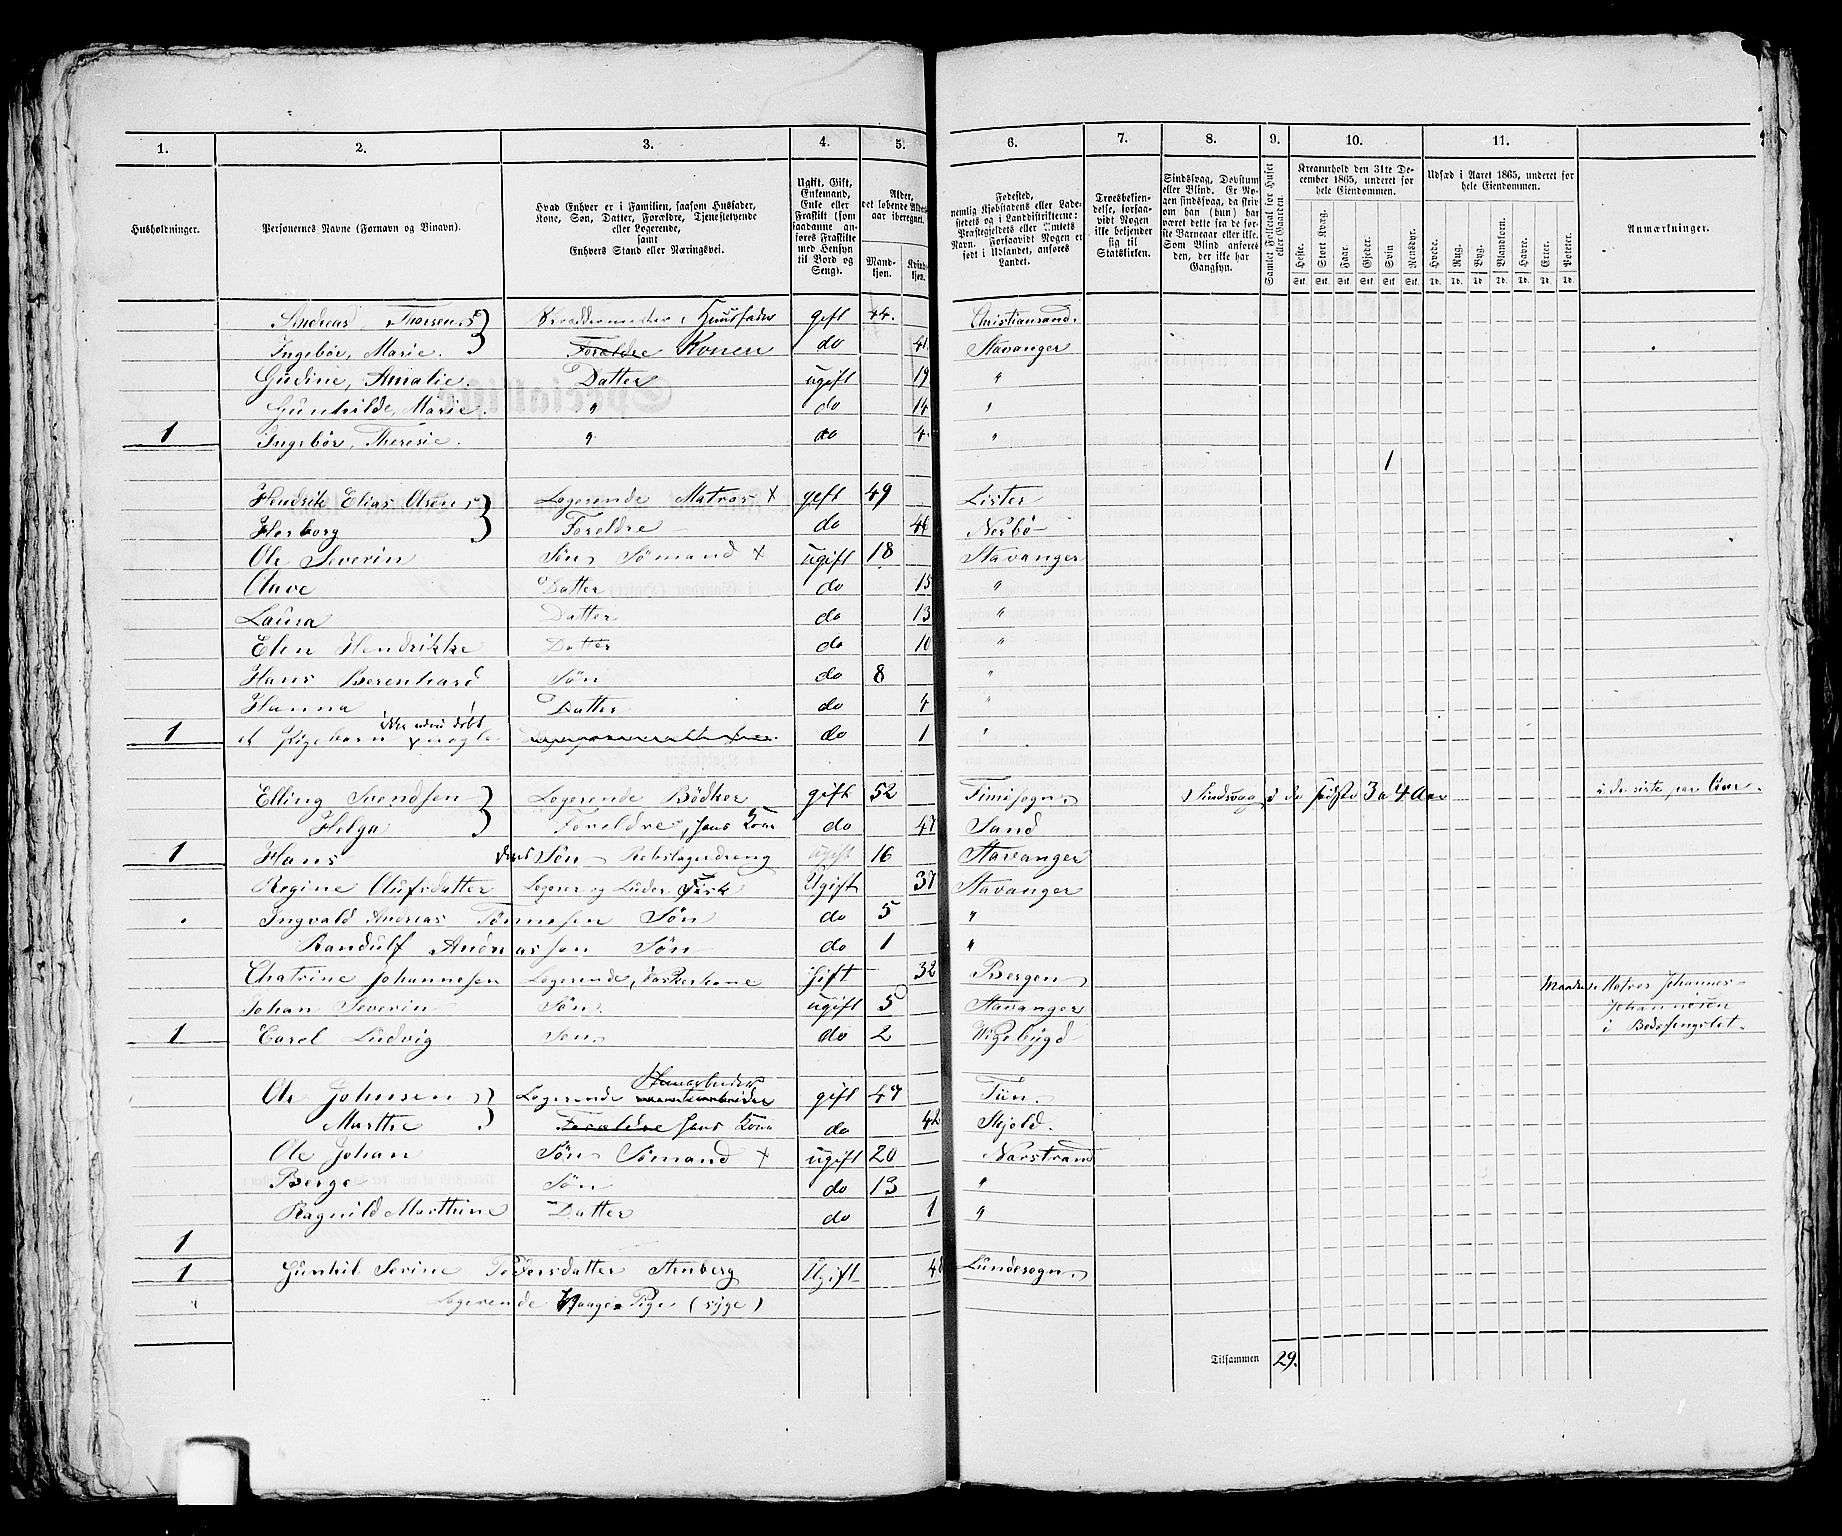 1. 2. 3. 4. 5. 6. 7. 8. 9. 10. 11.
Husholdninger.
Personernes Navne (Fornavn og Binavn).
Hvad Enhver er i Familien, saasom Husfader, Kone, Søn, Datter, Forældre, Tjenestetyende eller Logerende, samt Enhvers Stand eller Næringsvei.
Ugift, Gift, Enkemand, Enke eller Fraskilt (som saadanne anføres Fraskilte med Hensyn til Bord og Seng).
Alder, det løbende Aldersaar iberegnet.
Mandkjøn. Kvindekjøn.
Fødested, nemlig Kjøbstadens eller Ladestedets og i Landdistrikterne: Præstegjeldets eller Amtets Navn. Forsaavidt Nogen er født i Udlandet, anføres Landet.
Troesbekjendelse, forsaavidt Nogen ikke bekjender sig til Statskirken.
Sindssvag, Døvstum eller Blind. Er Nogen sindssvag, da skrives om han (hun) har været dette fra de første Barneaar eller ikke. Som Blind anføres den, der ikke har Gangsyn.
Samlet Folketal for Huset eller Gaarden.
Kreaturhold den 31te December 1865, underet for hele Eiendommen.
Heste. Stort Kvæg. Faar. Gjeder. Svin Rensdyr.
Stk. Stk. Stk. Stk. Stk. Stk.
Udsæd i Aaret 1865, underet for hele Eiendommen.
Hvede. Rug. Byg. Blandkorn. Havre. Erter. Poteter.
Td. Td. Td. Td. Td. Td. Td.
Anmærkninger.
Andreas Thorsen Husfader gift 44. Christiansand.
Ingebor, Marie. Forældre Konen do 41. Stavanger
Gudine, Amalie. Datter ugift 19 "
Gunhilde, Marie. " do 14 "
1 Ingebor, Theresie. " do 4. "
1
Hendrik Elias Olsen Logerende Matros x gift 49 Lister
Herborg Foreldre do 44 Nerbø
Ole Severin Søn Sömand x ugift 18 Stavanger
Datter do 15 "
Laura Datter do 13 "
Elen Hendrikke Datter do 10 "
Hans Berenhard Søn do 8 "
Hanna Datter do 4 "
1 et Pigebarn ikke døbt do 1 "
Elling Svendsen Logerende Bödker gift 52 Timesogn Sindsvag i de sidste 3 a 4 Aar i de siste par Aar.
Helga Foreldre, hans Kone do 47 Sand
1 Hans deres Søn Rebslagerdreng ugift 16 Stavanger
Regine Olufsdatter Logerer og Ugift 37 Stavanger
Ingvald Andreas Tønnesen Søn do 5 "
Randulf Andreassen Søn do 1 "
Chatrine Johannesen Logerende, Vaskerkone Gift 32 Bergen Manden Matros Johannes
Johan Severin Søn ugift 5 Stavanger Johannesen
1 Carel Ludvig Søn do 2 i Bodsfengslet.
Ole Johnsen Logerende gift 47
Marthe Foreldre hans Kone do 42 Skjold.
Ole Johan Søn Sömand x ugift 20 Narstrand
Berge Søn do 13 "
Ragnild Marthine Datter do 1 "
1
1 Gunhil Serine Pedersdatter Ugift Lundesogn.
Logerende Pige (syge)
Tilsammen 29.